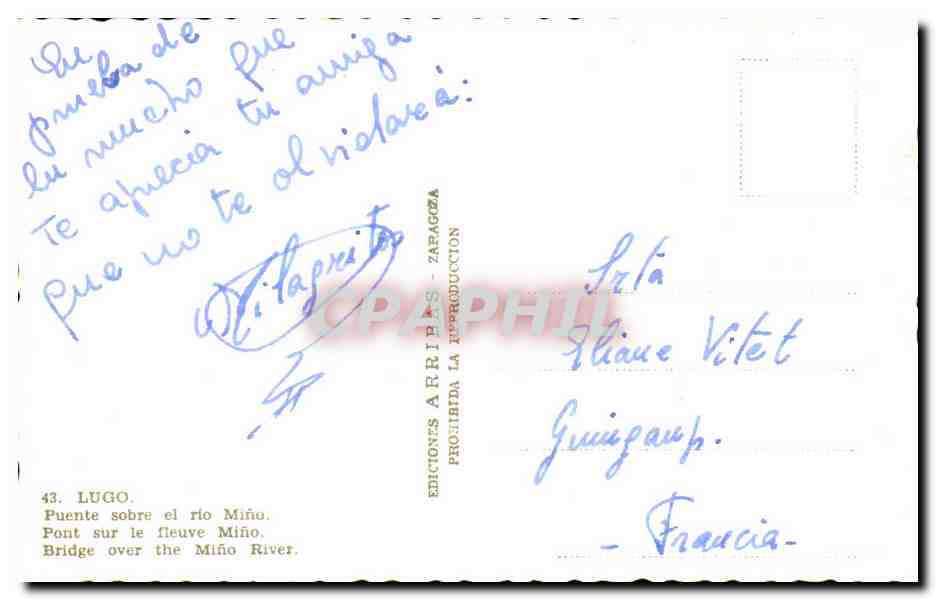 En
prueba de
lu mucho que
Te aprecia tu amiga
que no te olvidará:
Milagritos
EDICIONES ARRIBAS - ZARAGOZA
PROHIBIDA LA REPRODUCCION
CPAPHIL
Srta
Eliane Vitet
Guingamp.
- Francia -
43. LUGO.
Puente sobre el río Miño.
Pont sur le fleuve Miño.
Bridge over the Miño River.